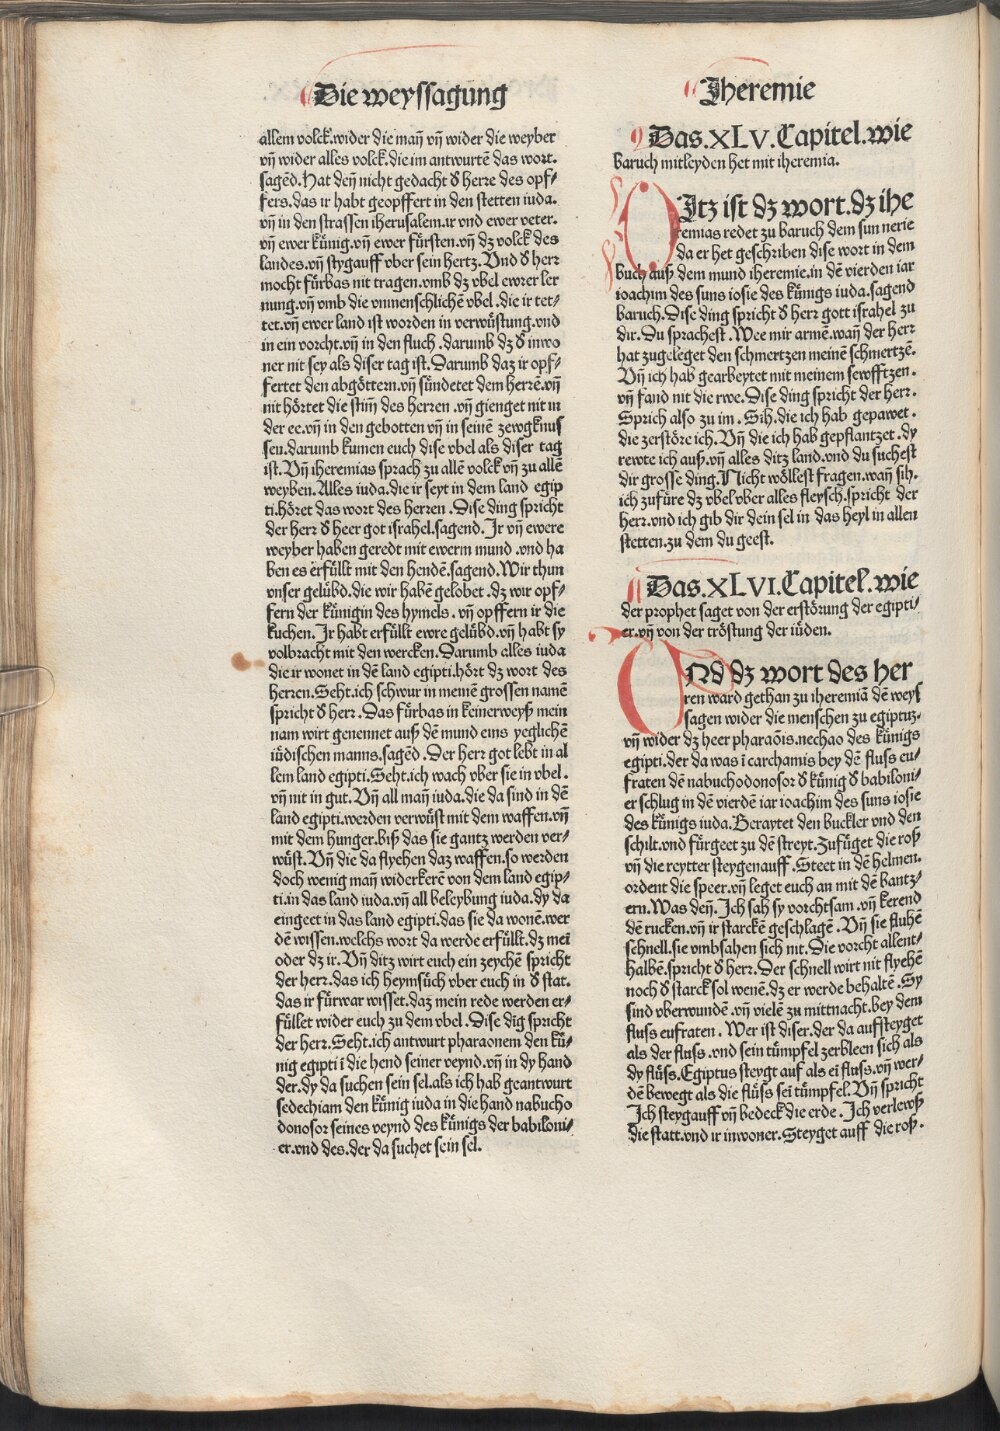 Die weyssagung
allem volck.wider die mañ vñ wider die weyber
vñ wider alles volck.die im antwurtē das wort.
sagēd.Hat deñ nicht gedacht d̕ herre des opf-
fers.das ir habt geopffert in den stetten iuda.
vñ in den strassen iherusalem.ir vnd ewer veter.
vñ ewer kůnig.vñ ewer fürsten.vñ dz volck des
landes.vñ stygauff vber sein hertz.Vnd d̕ herr
mocht fürbas nit tragen.vmb dz vbel ewrer ler
nung.vñ vmb die vnmenschlichē vbel.die ir tet-
tet.vñ ewer land ist worden in verwüstung.vnd
in ein vorcht.vñ in den fluch.darumb dz d̕ inwo
ner nit sey als diser tag ist.Darumb daz ir opf-
fertet den abgöttern.vñ sündetet dem herrē.vñ
nit hörtet die stim̃ des herren.vñ gienget nit in
der ee.vñ in den gebotten vñ in seinē zewgknus
sen.darumb kumen euch dise vbel als diser tag
ist.Vñ iheremias sprach zu allē volck vñ zu allē
weyben.Alles iuda.die ir seyt in dem land egip
ti.höret das wort des herren.Dise ding spricht
der herr d̕ heer got israhel.sagend.Ir vñ ewere
weyber haben geredt mit ewerm mund.vnd ha
ben es erfüllt mit den hendē.sagend.Wir thun
vnser gelübd.die wir habē gelobet.dz wir opf-
fern der künigin des hymels.vñ opffern ir die
kuchen.Ir habt erfüllt ewre gelübd.vñ habt sy
volbracht mit den wercken.Darumb alles iuda
die ir wonet in dē land egipti.hört dz wort des
herren.Seht.ich schwur in meinē grossen namē
spricht d̕ herr.Das fürbas in keinerweyß mein
nam wirt genennet auß dē mund eins yeglichē
iüdischen manns.sagēd.Der herr got lebt in al
lem land egipti.Seht.ich wach vber sie in vbel.
vñ nit in gut.Vñ all mañ iuda.die da sind in dē
land egipti.werden verwüst mit dem waffen.vñ
mit dem hunger.biß das sie gantz werden ver-
wüst.Vñ die da flyehen daz waffen.so werden
doch wenig mañ widerkerē von dem land egip-
ti.in das land iuda.vñ all beleybung iuda.dy da
eingeet in das land egipti.das sie da wonē.wer
dē wissen.welchs wort da werde erfüllt.dz mei
oder dz ir.Vñ ditz wirt euch ein zeychē spricht
der herr.das ich heymsüch vber euch in d̕ stat.
das ir fürwar wisset.daz mein rede werden er-
füllet wider euch zu dem vbel.Dise dīg spricht
der herr.Seht.ich antwurt pharaonem den kü-
nig egipti ī die hend seiner veynd.vñ in dy hand
der.dy da suchen sein sel.als ich hab geantwurt
sedechiam den künig iuda in die hand nabucho
donosor seines veynd des künigs der babiloni-
er.vnd des.der da suchet sein sel.
Jheremie
Das.XLV.Capitel.wie
baruch mitleyden het mit iheremia.
Ditz ist dz wort.dz ihe
remias redet zu baruch dem sun nerie
da er het geschriben dise wort in dem
buch auß dem mund iheremie.in dē vierden iar
ioachim des suns iosie des künigs iuda.sagend
baruch.Dise ding spricht d̕ herr gott israhel zu
dir.Du sprachest.Wee mir armē.wañ der herr
hat zugeleget den schmertzen meinē schmertzē.
Vñ ich hab gearbeytet mit meinem sewfftzen.
vñ fand nit die rwe.Dise ding spricht der herr.
Sprich also zu im.Sih.die ich hab gepawet.
die zerstöre ich.Vñ die ich hab gepflantzet.dy
rewte ich auß.vñ alles ditz land.vnd du suchest
dir grosse ding.Nicht wöllest fragen.wañ sih.
ich zufüre dz vbel vber alles fleysch.spricht der
herr.vnd ich gib dir dein sel in das heyl in allen
stetten.zu dem du geest.
Das.XLVI.Capitel.wie
der prophet saget von der erstörung der egipti-
er.vñ von der tröstung der iüden.
Vnd dz wort des her
ren ward gethan zu iheremiā dē weys
sagen wider die menschen zu egiptus.
vñ wider dz heer pharaōis.nechao des künigs
egipti.der da was ī carchamis bey dē fluss eu-
fraten dē nabuchodonosor d̕ künig d̕ babiloni-
er schlug in dē vierdē iar ioachim des suns iosie
des künigs iuda.Beraytet den buckler vnd den
schilt.vnd fürgeet zu dē streyt.Zufüget die roß
vñ die reytter steygenauff.Steet in dē helmen.
ordent die speer.vñ leget euch an mit dē bantz-
ern.Was deñ.Ich sah sy vorchtsam.vñ kerend
dē rucken.vñ ir starckē geschlagē.Vñ sie fluhē
schnell.sie vmbsahen sich nit.Die vorcht allent-
halbē.spricht d̕ herr.Der schnell wirt nit flyehē
noch d̕ starck sol wenē.dz er werde behaltē.Sy
sind vberwundē.vñ vielē zu mittnacht.bey dem
fluss eufraten.Wer ist diser.der da aufsteyget
als der fluss.vnd sein tümpfel zerbleen sich als
dy flüss.Egiptus steygt auf als ei fluss.vñ wer-
dē bewegt als die flüss sei tümpfel.Vñ spricht
Ich steygauff vñ bedeck die erde.Ich verlewß
die statt.vnd ir inwoner.Steyget auff die roß.